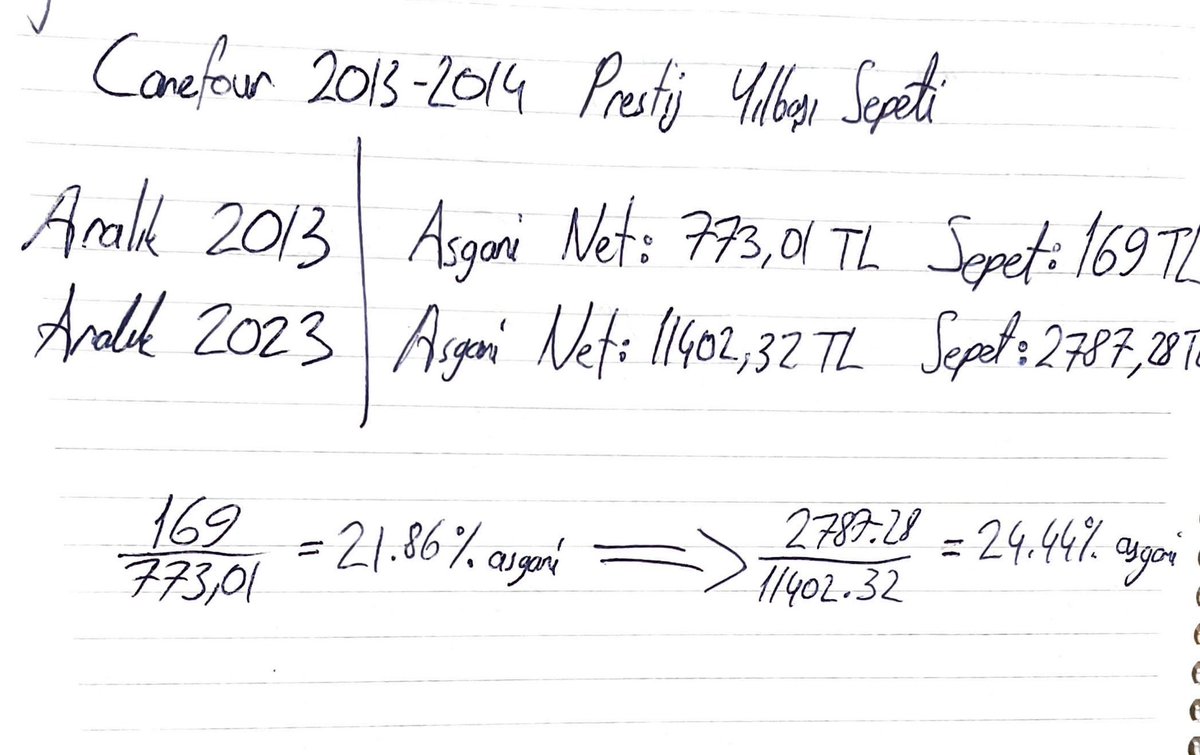 Carrefour 2013-2014 Prestij Yılbaşı Sepeti
Aralık 2013 Asgari Net: 773,01 TL Sepet: 169 TL
Aralık 2023 Asgari Net: 11402,32 TL Sepet: 2787,28 TL
169/773,01 = 21.86% asgari => 2787.28/11402.32 = 24.44% asgari